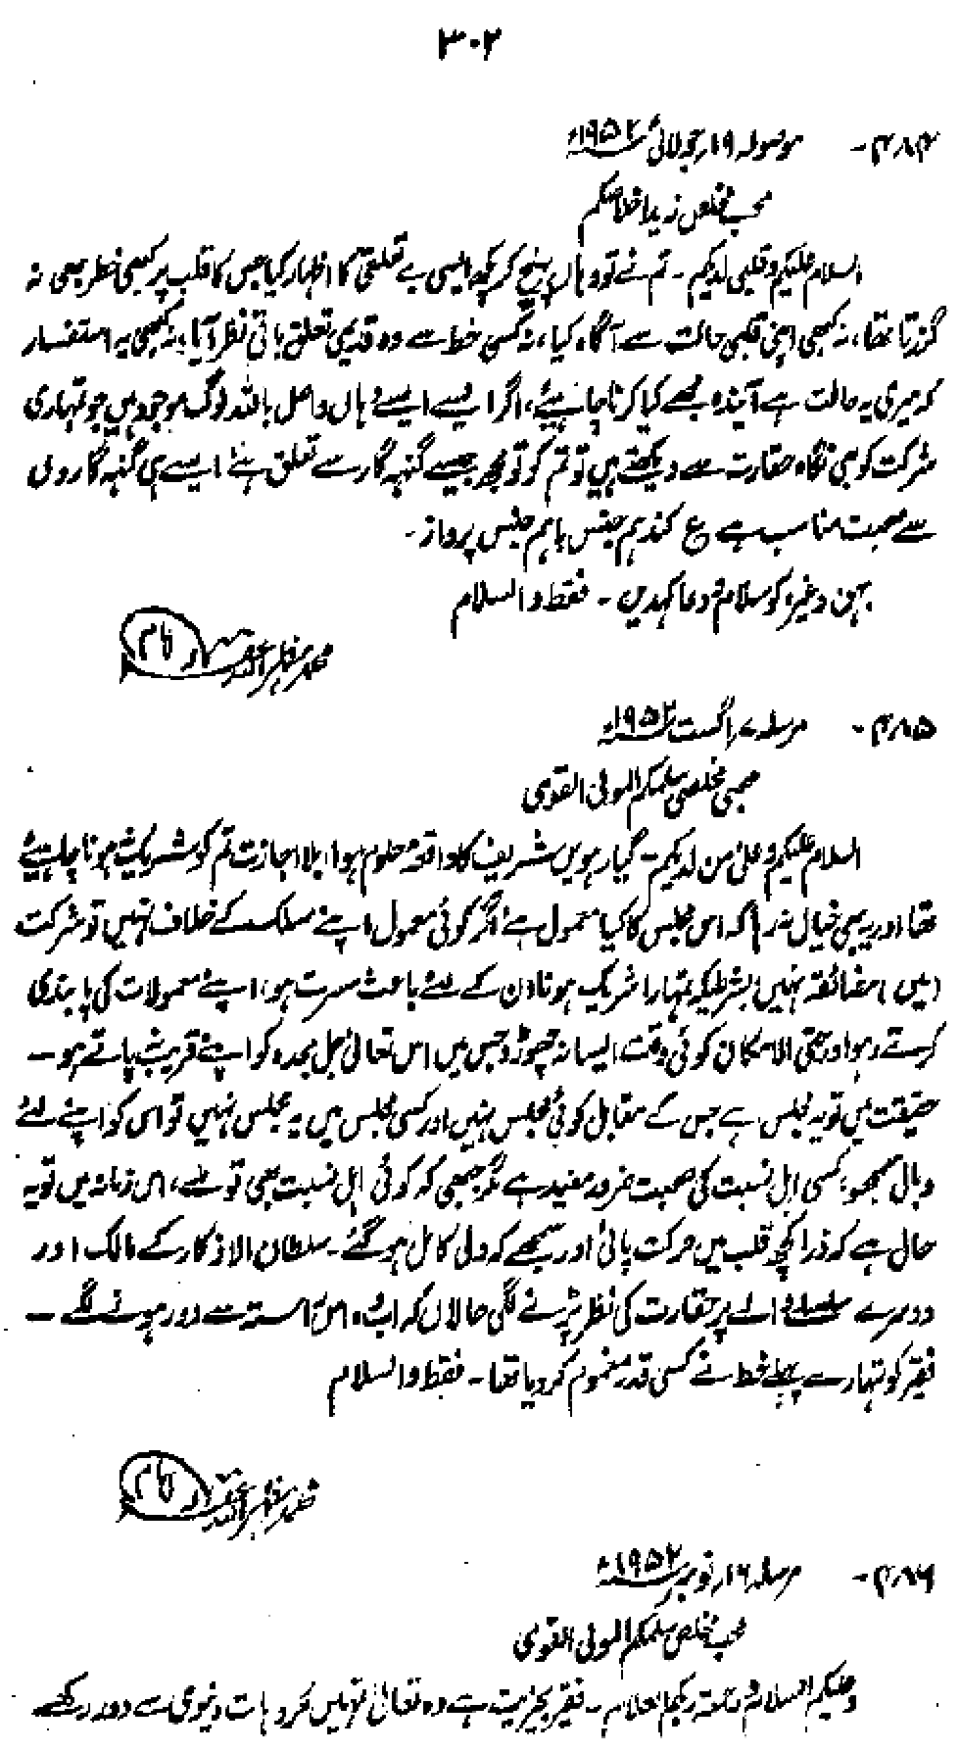 ۳۰۲
۴۸۴- موصولہ ۱۹؍جولائی ۱۹۵۲ء
محب مخلص زید اخلاصکم
السلام علیکم و قلبی لدیکم۔ تم نے تو وہاں پہنچ کر کچھ ایسی بے تعلقی کا اظہار کیا جس کا قلب پر کبھی خطر بھی نہ
گزرتا تھا، نہ کبھی اپنی قلبی حالت سے آگاہ کیا، نہ کسی خط سے وہ قدیمی تعلق باقی نظر آیا، نہ کبھی یہ استفسار
کہ میری یہ حالت ہے آیندہ مجھے کیا کرنا چاہیئے، اگر ایسے ایسے وہاں واصل باللہ لوگ موجود ہیں جو تمہاری
شرکت کو بھی نگاہ حقارت سے دیکھتے ہیں تو تم کو تو مجھ جیسے گنہہ گار سے تعلق ہے ایسے ہی گنہہ گاروں
سے صحبت مناسب ہے ع کند ہم جنس باہم جنس پرواز۔
بہن وغیرہ کو سلام و دعا کہدیں۔ فقط والسلام
محمد مظہر اللہ
۴۸۵- مرسلہ ۷؍اگست ۱۹۵۲ء
محبی مخلصی سلمکم المولی القوی
السلام علیکم وعلیٰ من لدیکم۔ گیارہویں شریف کا واقعہ معلوم ہوا، بلا اجازت تم کو شریک نہ ہونا چاہیئے
تھا اور یہ بھی خیال نہ رہا کہ اس مجلس کا کیا معمول ہے اگر کوئی معمول اپنے مسلک کے خلاف نہیں تو شرکت
(میں) مضائقہ نہیں بشرطیکہ تمہارا شریک ہونا ان کے لئے باعث مسرت ہو، اپنے معمولات کی پابندی
کرتے رہو اور حتی الامکان کوئی وقت ایسا نہ چھوڑو جس میں اس تعالیٰ جل مجدہ کو اپنے قریب پاتے ہو۔
حقیقت میں تو یہ مجلس ہے جس کے مقابل کوئی مجلس نہیں اور کسی مجلس میں یہ مجلس نہیں تو اس کو اپنے لئے
وبال سمجھو، کسی اہل نسبت کی صحبت ضرور مفید ہے مگر جبھی کہ کوئی اہل نسبت بھی تو ملے، اس زمانہ میں تو یہ
حال ہے کہ ذرا کچھ قلب میں حرکت پائی اور سمجھے کہ ولی کامل ہو گئے۔ سلطان الاذکار کے مالک اور
دوسرے سلسلے والے پر حقارت کی نظر پڑنے لگی حالاں کہ اب وہ اس راستہ سے دور ہونے لگے۔
فقیر کو تمہارے پہلے خط نے کسی قدر مغموم کر دیا تھا۔ فقط والسلام
محمد مظہر اللہ
۴۸۶- مرسلہ ۱۶؍نومبر ۱۹۵۲ء
محب مخلص سلمکم المولی القوی
وعلیکم السلام ربکم العلام۔ فقیر بخیریت ہے وہ تعالیٰ تمہیں مکروہات دنیوی سے دور رکھے